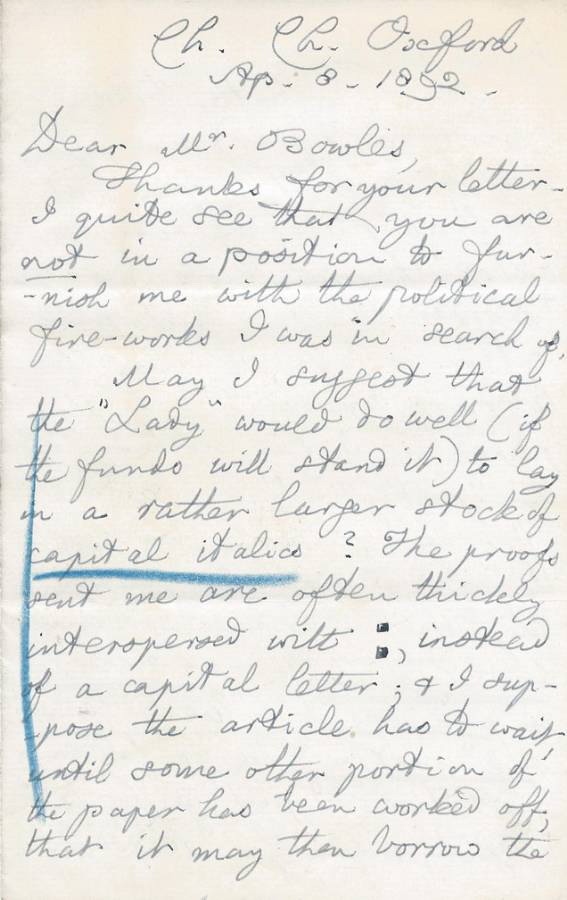 Ch. Ch. Oxford
Ap. 8. 1892.
Dear Mr. Bowles,
Thanks for your letter-
I quite see that you are
not in a position to fur-
-nish me with the political
fire-works I was in search of.
May I suggest that
the "Lady" would do well (if
the funds will stand it) to lay
in a rather larger stock of
capital italics? The proofs
sent me are often thickly
interspersed with :, instead
of a capital letter; & I sup-
pose the article has to wait,
until some other portion of
the paper has been worked off,
that it may then borrow the